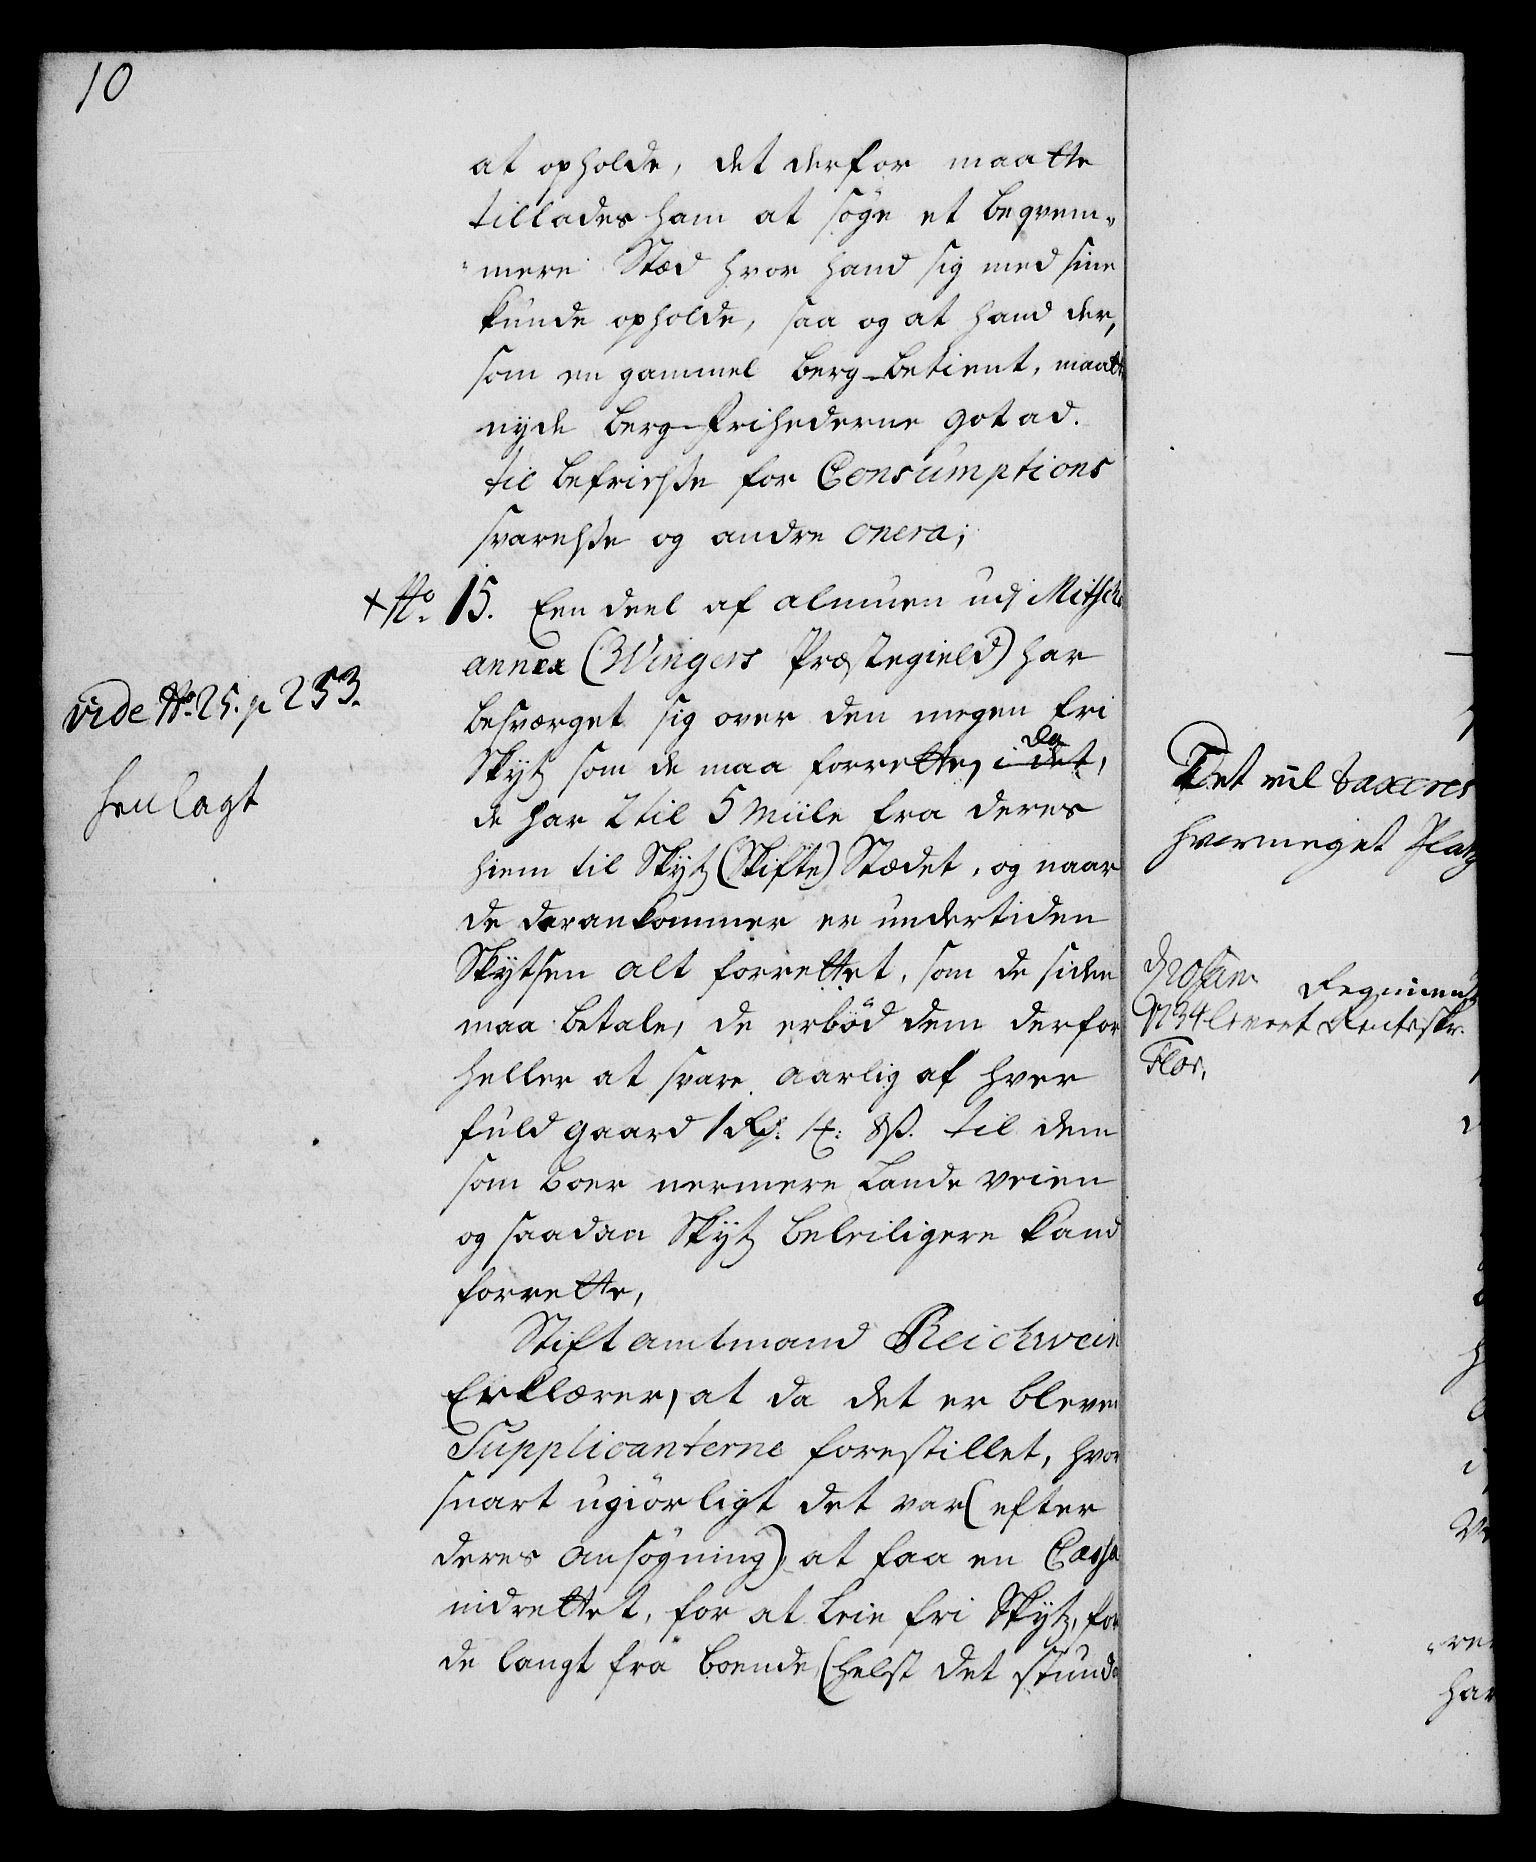 10
at opholde, det derfor maatte
tillades ham at søge et beqvem-
mere Stæd hvor hand sig med sine
kunde opholde, saa og at hand der,
som en gammel Berg-betient, maatte
nyde Berg-Frihederne got ad.
til befrielse for Consumptions
svarelse og andre onera;
+ No. 15. Een deel af almuen udi Mitschou
annex (Wingers Præstegield) har
vide No. 25. p 253.
besværget sig over den megen fri
da
Skytz som de maa forrette, i det,
henlagt
de har 2 til 5 Miile fra deres
hiem til Skytz (Skifte) Stædet, og naar
de derankommer er undertiden
Skytsen alt forrettet, som de siden
maa betale, de erbød dem derfor
heller at svare aarlig af hver
fuld gaard 1 Rd. 8 ß. til dem
som boer nermere Lande veien
og saadan Skytz beleiligere kand
forrette,
Stiftamtmand Reichwein
Erklærer, at da det er bleven
Supplicanterne forestillet, hvor
snart ugiørligt det var (efter
deres ansøgning) at faa en Cassa
indrettet, for at leie fri Skytz, for
de langt fra boende (helst det stund
Det vil taxeres
hvormeget Platz
d 20 Jan.
1734 levert Renteskr.
Flor.
har